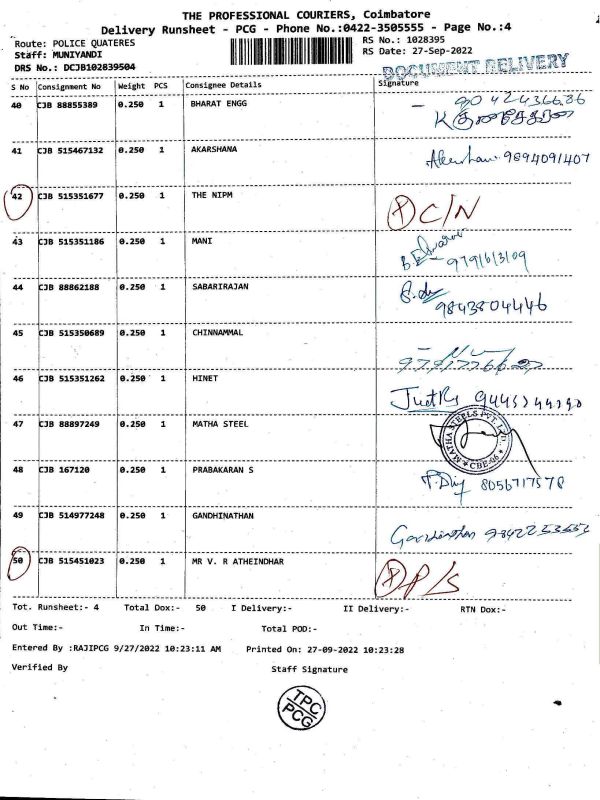 THE PROFESSIONAL COURIERS, Coimbatore
Delivery Runsheet - PCG - Phone No.:0422-3505555 - Page No.:4
Route: POLICE QUATERES RS No.: 1028395
Staff: MUNIYANDI RS Date: 27-Sep-2022
DRS No.: DCJB102839504 DOCUMENT DELIVERY
S No Consignment No Weight PCS Consignee Details Signature
40 CJB 88855389 0.250 1 BHARAT ENGG - 9042436636
41 CJB 515467132 0.250 1 AKARSHANA 9894091407
42 CJB 515351677 0.250 1 THE NIPM C/N
43 CJB 515351186 0.250 1 MANI
44 CJB 88862188 0.250 1 SABARIRAJAN 9843804446
45 CJB 515350689 0.250 1 CHINNAMMAL
46 CJB 515351262 0.250 1 HINET
47 CJB 88897249 0.250 1 MATHA STEEL MATHA STEELS PVT. LTD. CBE-06
48 CJB 167120 0.250 1 PRABAKARAN S 8056717578
49 CJB 514977248 0.250 1 GANDHINATHAN
50 CJB 515451023 0.250 1 MR V. R ATHEINDHAR P/S
Tot. Runsheet:- 4 Total Dox:- 50 I Delivery:- II Delivery:- RTN Dox:-
Out Time:- In Time:- Total POD:-
Entered By :RAJIPCG 9/27/2022 10:23:11 AM Printed On: 27-09-2022 10:23:28
Verified By Staff Signature
TPC
PCG